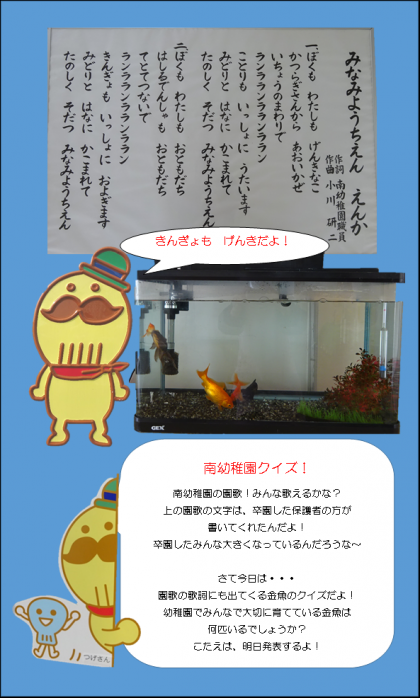 みなみようちえん　えんか
作詞　南幼稚園職員
作曲　小川　研二
一、ぼくも　わたしも　げんきなこ
かつらぎさんから　あおいかぜ
いちょうのまわりで
ランランランランララン
ことりも　いっしょに　うたいます
みどりと　はなに　かこまれて
たのしく　そだつ　みなみようちえん
二、ぼくも　わたしも　おともだち
はしるでんしゃも　おともだち
てとてつないで
ランランランランララン
きんぎょも　いっしょに　およぎます
みどりと　はなに　かこまれて
たのしく　そだつ　みなみようちえん
きんぎょも　げんきだよ！
GEX
南幼稚園クイズ！
南幼稚園の園歌！みんな歌えるかな？
上の園歌の文字は、卒園した保護者の方が
書いてくれたんだよ！
卒園したみんな大きくなっているんだろうな～
さて今日は・・・
園歌の歌詞にも出てくる金魚のクイズだよ！
幼稚園でみんなで大切に育てている金魚は
何匹いるでしょうか？
こたえは、明日発表するよ！
つげさん